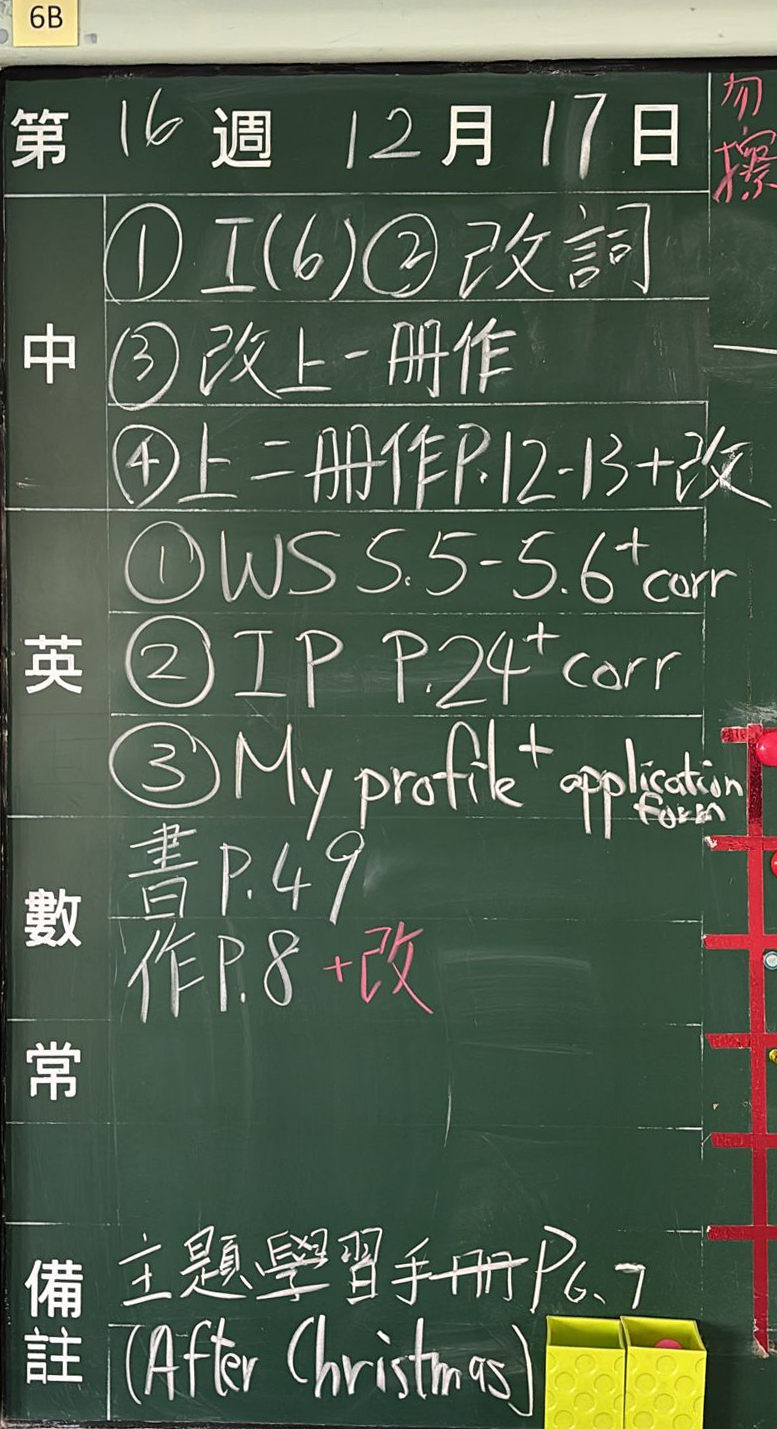 6B
第 16 週 12 月 17 日
勿擦
中
① I(6) ② 改詞
③ 改上一冊作
④ 上二冊作P.12-13+改
英
① WS 5.5-5.6+corr
② IP P.24+corr
③ My profile+ application form
數
書 P.49
作P.8 +改
常
備註
主題學習手冊P6、7
(After Christmas)